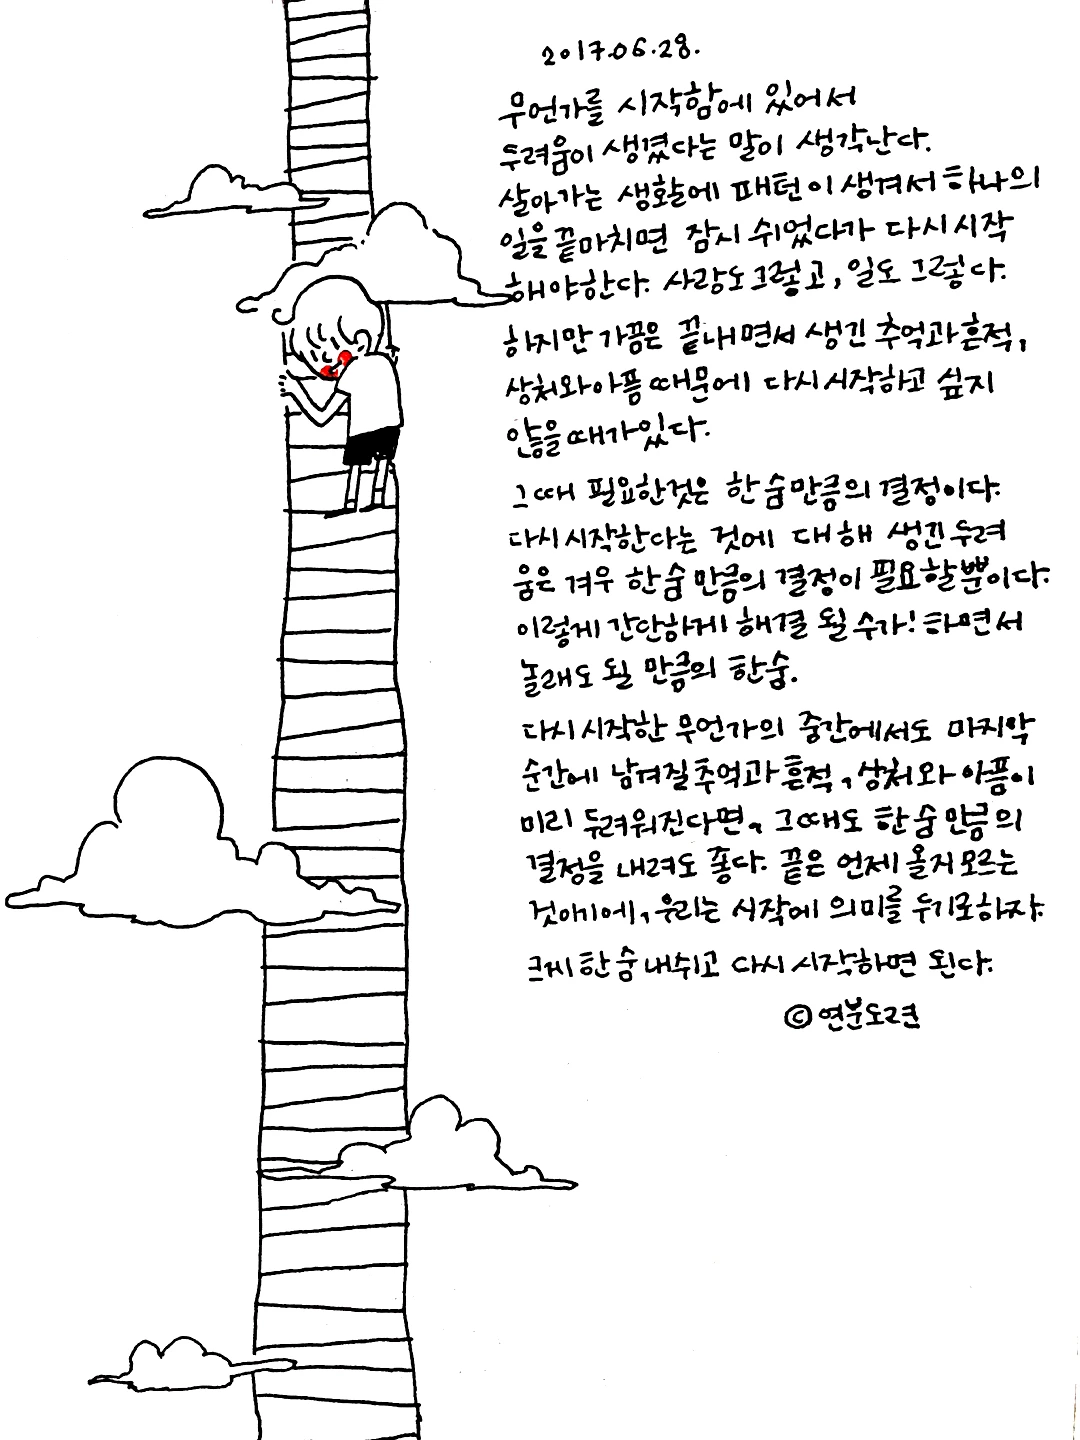 2017.06.28.
무언가를 시작함에 있어서
두려움이 생겼다는 말이 생각난다.
살아가는 생활에 패턴이 생겨서 하나의
일을 끝마치면 잠시 쉬었다가 다시 시작
해야한다. 사랑도 그렇고, 일도 그렇다.
하지만 가끔은 끝내면서 생긴 추억과 흔적,
상처와 아픔 때문에 다시 시작하고 싶지
않을 때가 있다.
그때 필요한것은 한 숨만큼의 결정이다.
다시 시작한다는 것에 대해 생긴 두려
움은 겨우 한 숨 만큼의 결정이 필요할뿐이다.
이렇게 간단하게 해결 될 수가! 하면서
놀래도 될 만큼의 한숨.
다시 시작한 무언가의 중간에서도 마지막
순간에 남겨질 추억과 흔적, 상처와 아픔이
미리 두려워진다면, 그때도 한 숨 만큼의
결정을 내려도 좋다. 끝은 언제 올지 모르는
것이기에, 우리는 시작에 의미를 두기로하자.
크게 한 숨 내쉬고 다시 시작하면 된다.
© 연분도련